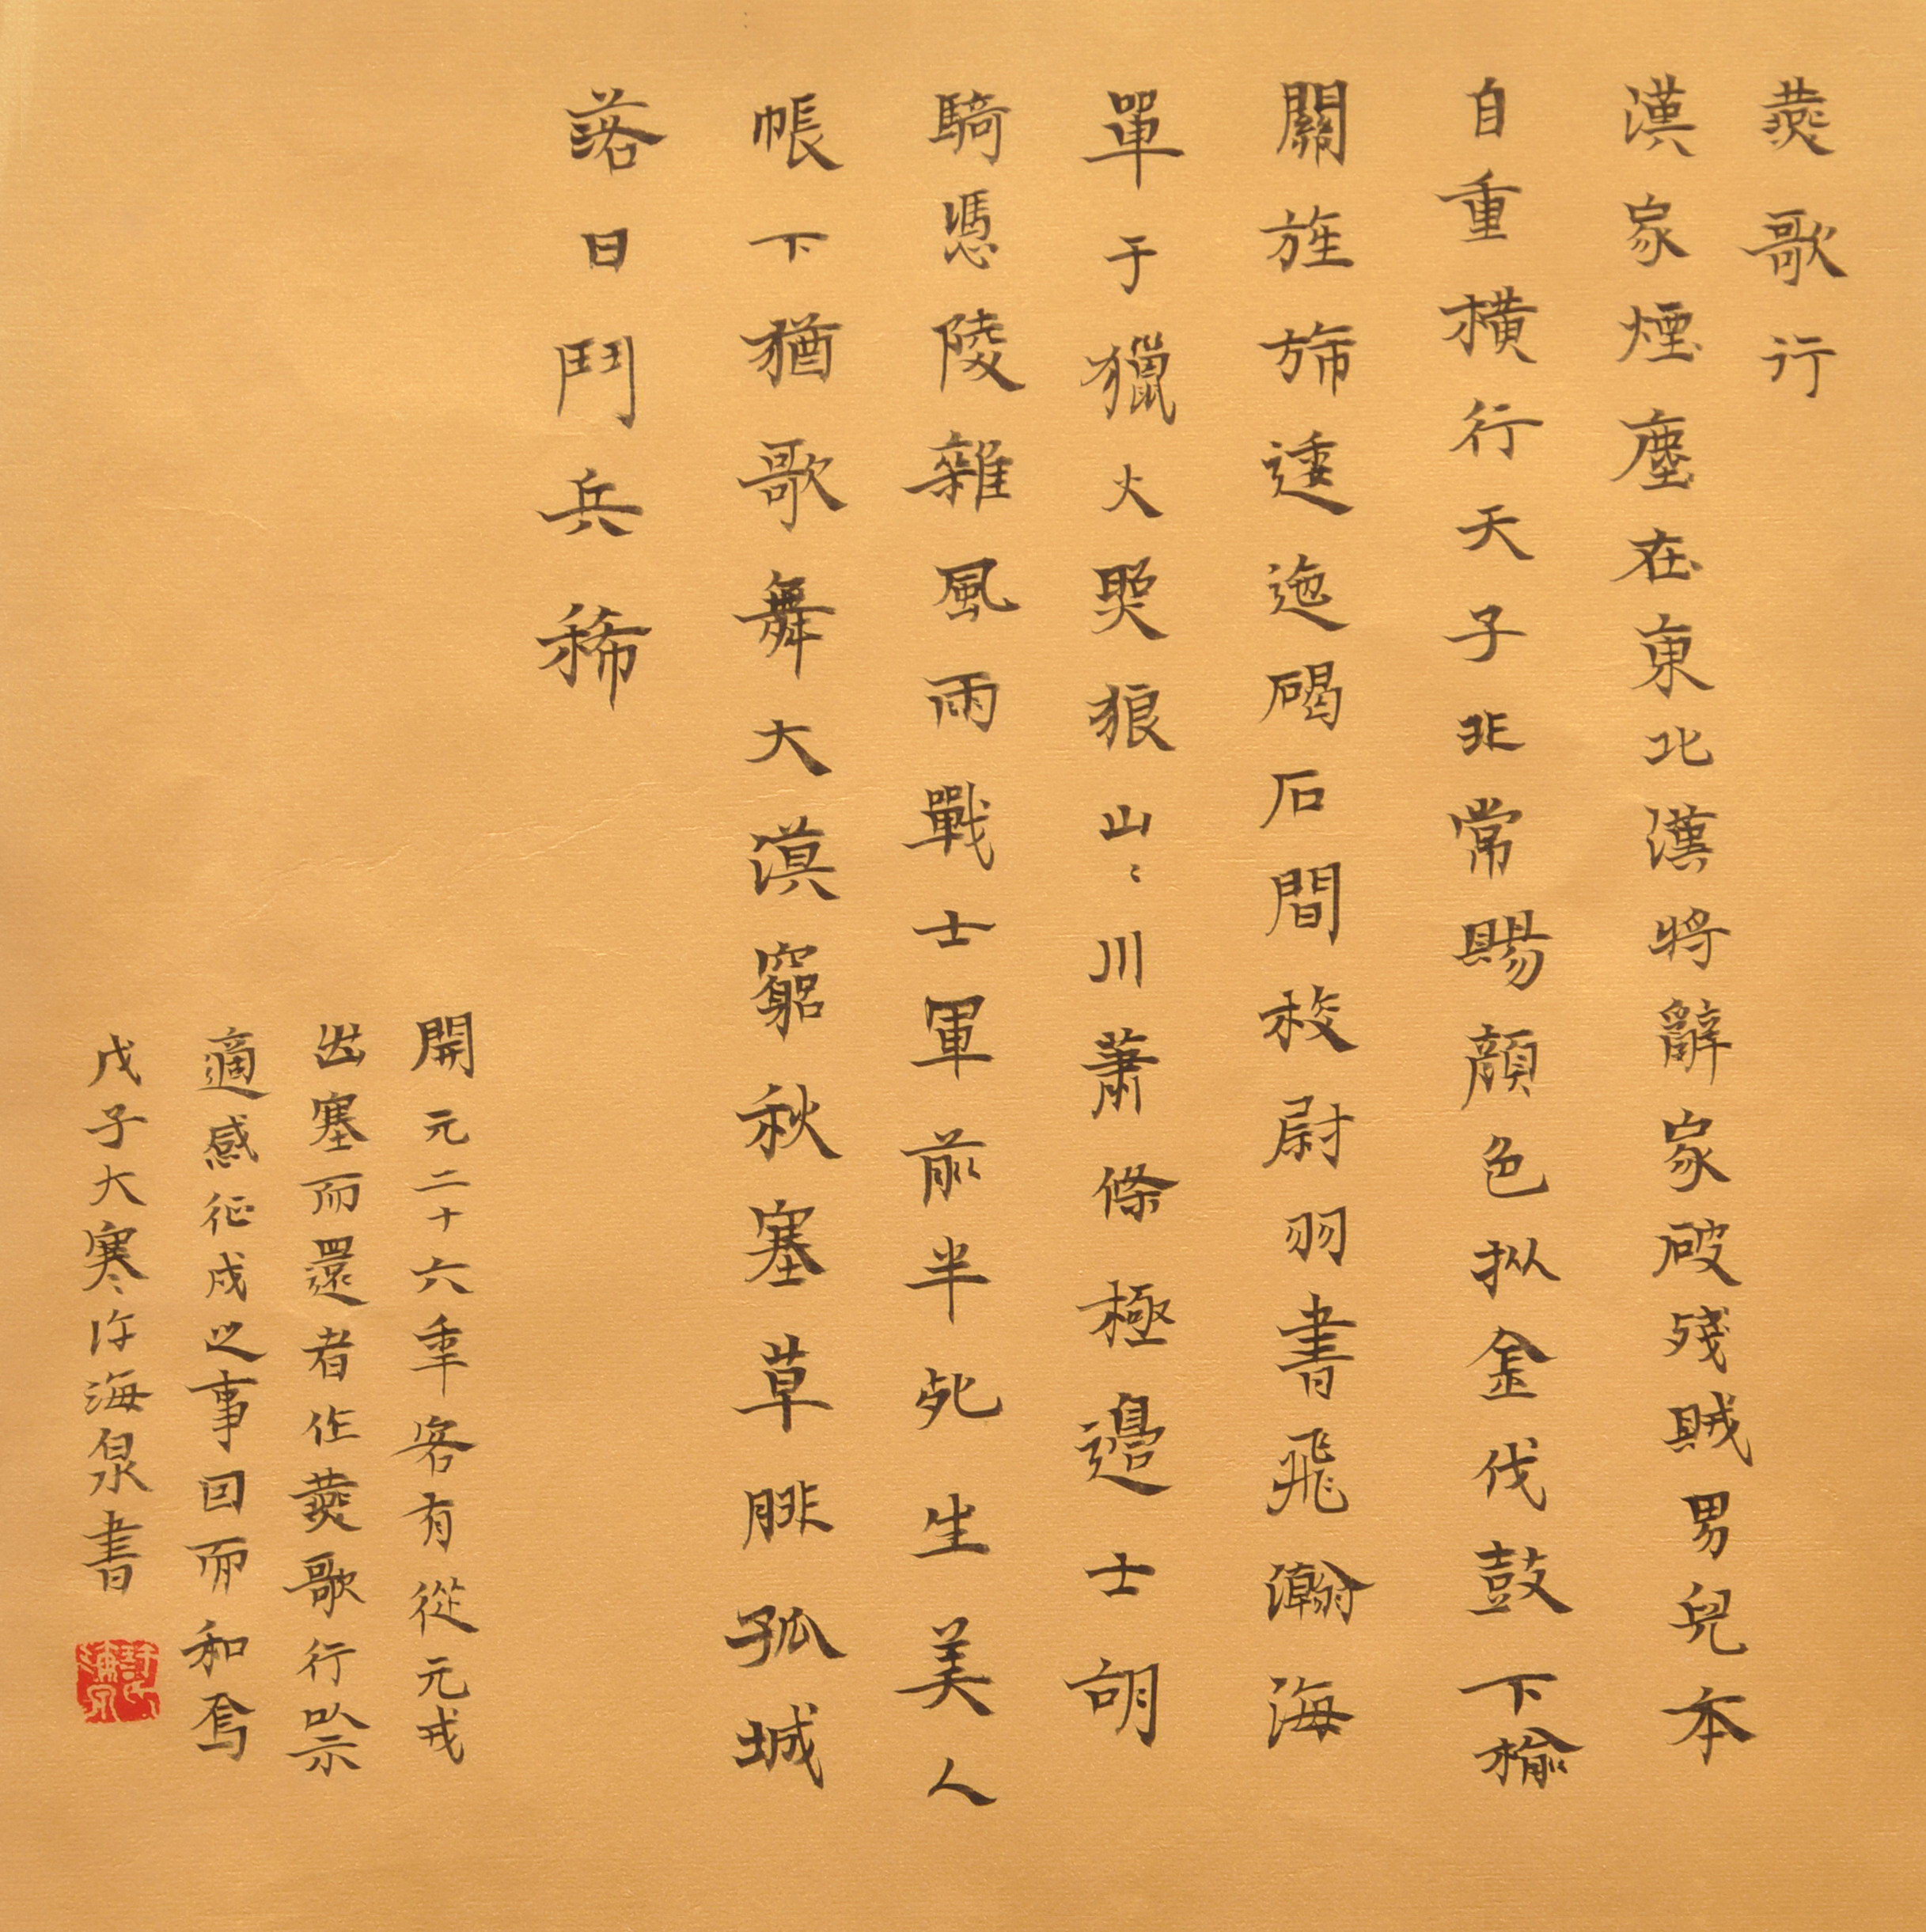 燕歌行
漢家煙塵在東北漢將辭家破殘賊男兒本
自重橫行天子非常賜顏色拟金伐鼓下榆
關旌旆逶迤碣石間校尉羽書飛瀚海
單于獵火照狼山〻川蕭條極邊士胡
騎憑陵雜風雨戰士軍前半死生美人
帳下猶歌舞大漠窮秋塞草腓孤城
落日鬥兵稀
開元二十六年客有從元戎
出塞而還者作燕歌行以示
適感征戍之事因而和焉
戊子大寒許海泉書